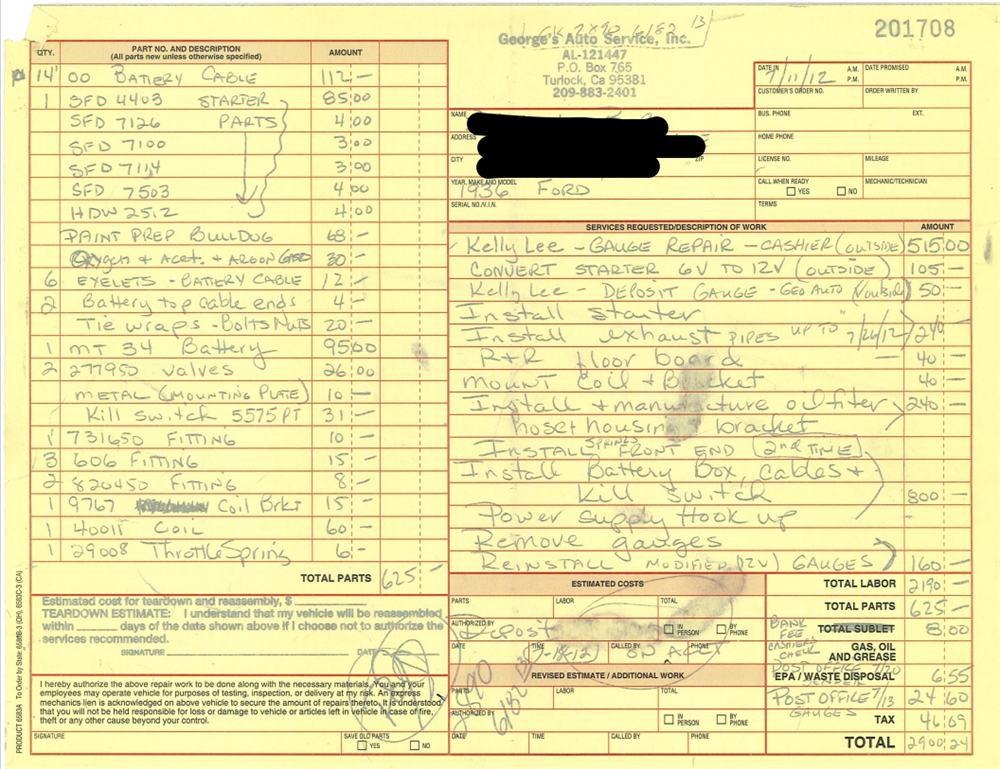 201708
George's Auto Service, Inc.
AL-121447
P.O. Box 765
Turlock, Ca 95381
209-883-2401
QTY. PART NO. AND DESCRIPTION AMOUNT
(All parts new unless otherwise specified)
14' 00 BATTERY CABLE 112 —
1 SFD 4403 STARTER 85 00
SFD 7126 PARTS 4 00
SFD 7100 3 00
SFD 7114 3 00
SFD 7503 4 00
HDW 2512 4 00
PAINT PREP BULLDOG 68 —
Oxygen & Acet. & ARGON 30 —
6 EYELETS - BATTERY CABLE 12 —
2 Battery top cable ends 4 —
Tie wraps - Bolts Nuts 20 —
1 MT 34 Battery 95 00
2 277950 valves 26 00
METAL (MOUNTING PLATE) 10 —
Kill switch 5575PT 31 —
1 731650 FITTING 10 —
3 606 FITTING 15 —
2 820450 FITTING 8 —
1 9767 Coil Brkt 15 —
1 40011 COIL 60 —
1 29008 Throttle Spring 6 —
TOTAL PARTS 625 —
Estimated cost for teardown and reassembly, $
TEARDOWN ESTIMATE: I understand that my vehicle will be reassembled
within days of the date shown above if I choose not to authorize the
services recommended.
SIGNATURE DATE
I hereby authorize the above repair work to be done along with the necessary materials. You and your
employees may operate vehicle for purposes of testing, inspection, or delivery at my risk. An express
mechanics lien is acknowledged on above vehicle to secure the amount of repairs thereto. It is understood
that you will not be held responsible for loss or damage to vehicle or articles left in vehicle in case of fire,
theft or any other cause beyond your control.
SIGNATURE SAVE OLD PARTS
YES NO
PRODUCT 6583A To Order by State: 6588B-3 (OH), 6583C-3 (CA)
DATE IN 7/11/12 A.M. P.M. DATE PROMISED A.M. P.M.
CUSTOMER'S ORDER NO. ORDER WRITTEN BY
NAME BUS. PHONE EXT.
ADDRESS HOME PHONE
CITY ZIP LICENSE NO. MILEAGE
YEAR, MAKE AND MODEL 1936 FORD CALL WHEN READY YES NO MECHANIC/TECHNICIAN
SERIAL NO./V.I.N. TERMS
SERVICES REQUESTED/DESCRIPTION OF WORK AMOUNT
Kelly Lee - GAUGE REPAIR - CASHIER (OUTSIDE) 515 00
CONVERT STARTER 6V TO 12V (OUTSIDE) 105 —
Kelly Lee - DEPOSIT GAUGE - GEO AUTO (OUTSIDE) 50 —
Install starter
Install exhaust PIPES UP TO 7/26/12 240
R+R floor board — 40 —
mount Coil + Bracket 40 —
Install + manufacture oil filter 240 —
hose + housing + bracket
INSTALL SPRINGS FRONT END (2nd TIME)
Install Battery Box, Cables +
Kill switch 800 —
Power supply Hook up
Remove gauges
REINSTALL MODIFIED (12V) GAUGES 160 —
ESTIMATED COSTS TOTAL LABOR 2190 —
PARTS LABOR TOTAL TOTAL PARTS 625 —
AUTHORIZED BY Depost IN PERSON BY PHONE
BANK FEE CASHIERS CHECK TOTAL SUBLET 8 00
DATE TIME CALLED BY PHONE ON ACCT
GAS, OIL AND GREASE
REVISED ESTIMATE / ADDITIONAL WORK
POST OFFICE 7/20 EPA / WASTE DISPOSAL 6 55
PARTS LABOR TOTAL POST OFFICE 7/13 GAUGES 24 60
AUTHORIZED BY IN PERSON BY PHONE TAX 46 09
DATE TIME CALLED BY PHONE TOTAL 2900 24